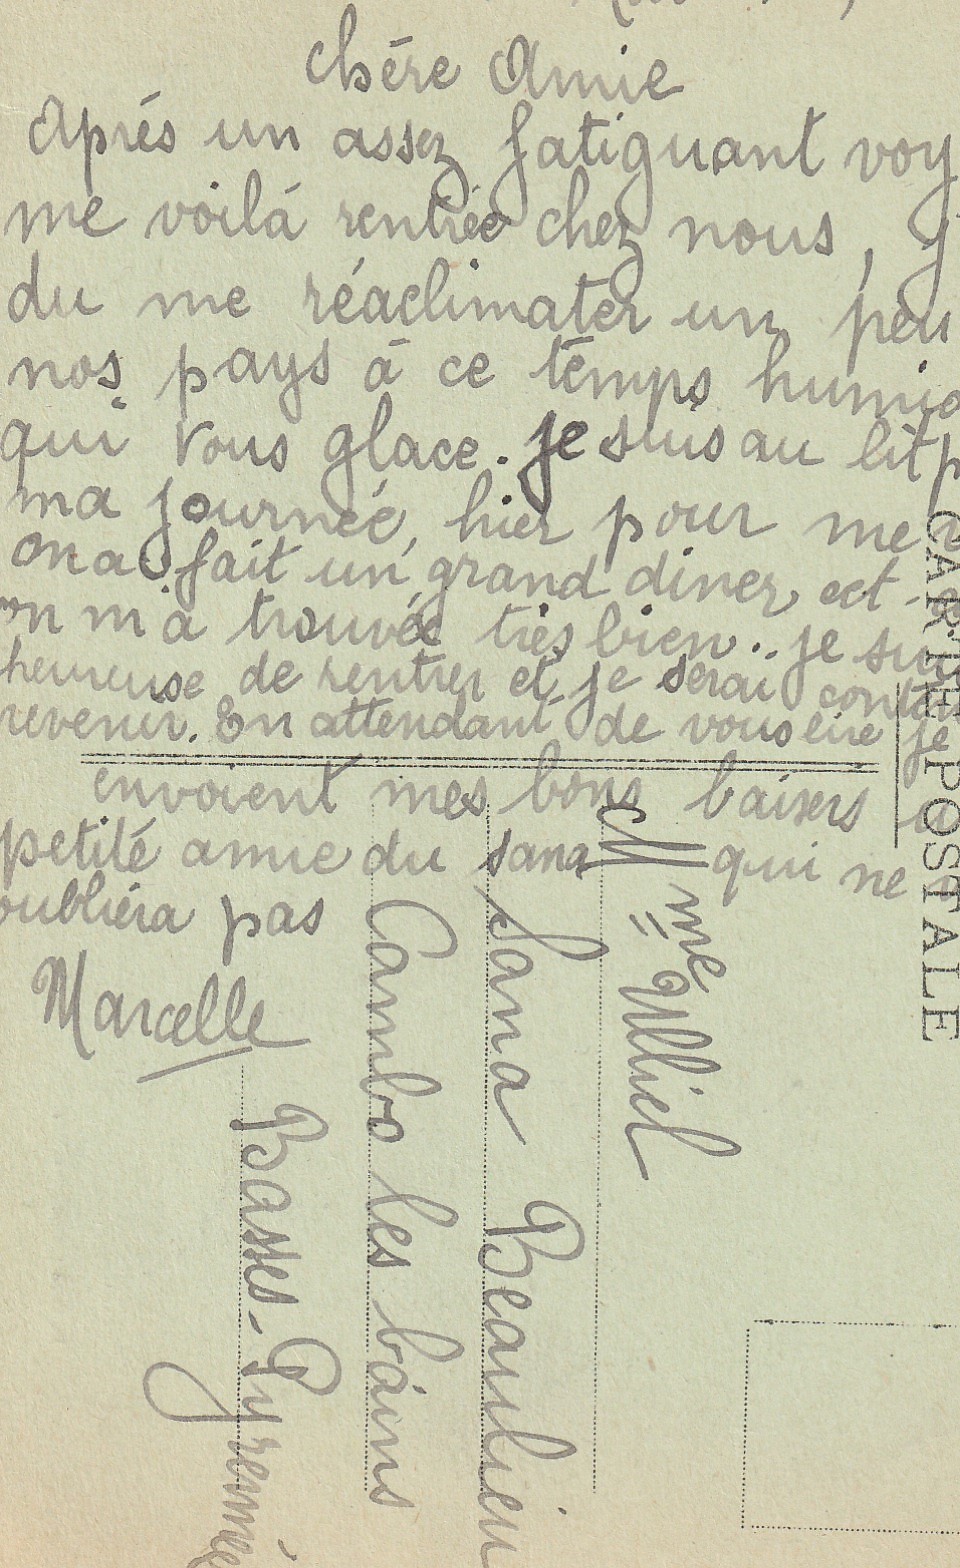 Chére Amie
Aprés un assez fatiguant voy
me voilá rentrée chez nous, j
du me réaclimater un peu
nos pays à ce temps humid
qui vous glace. je suis au lit p
ma journée, hier pour me
on a fait un grand diner ect.
on m'a trouvée très bien.. je suis
heureuse de rentrer et je serai content
revenir. En attendant de vous lire je
envoient mes bons baisers à
petité amie du sana qui ne
oubliera pas
Marcelle
CARTE POSTALE
Mme
Sana Beaulieu
Cambo les bains
Basses-Pyrennée